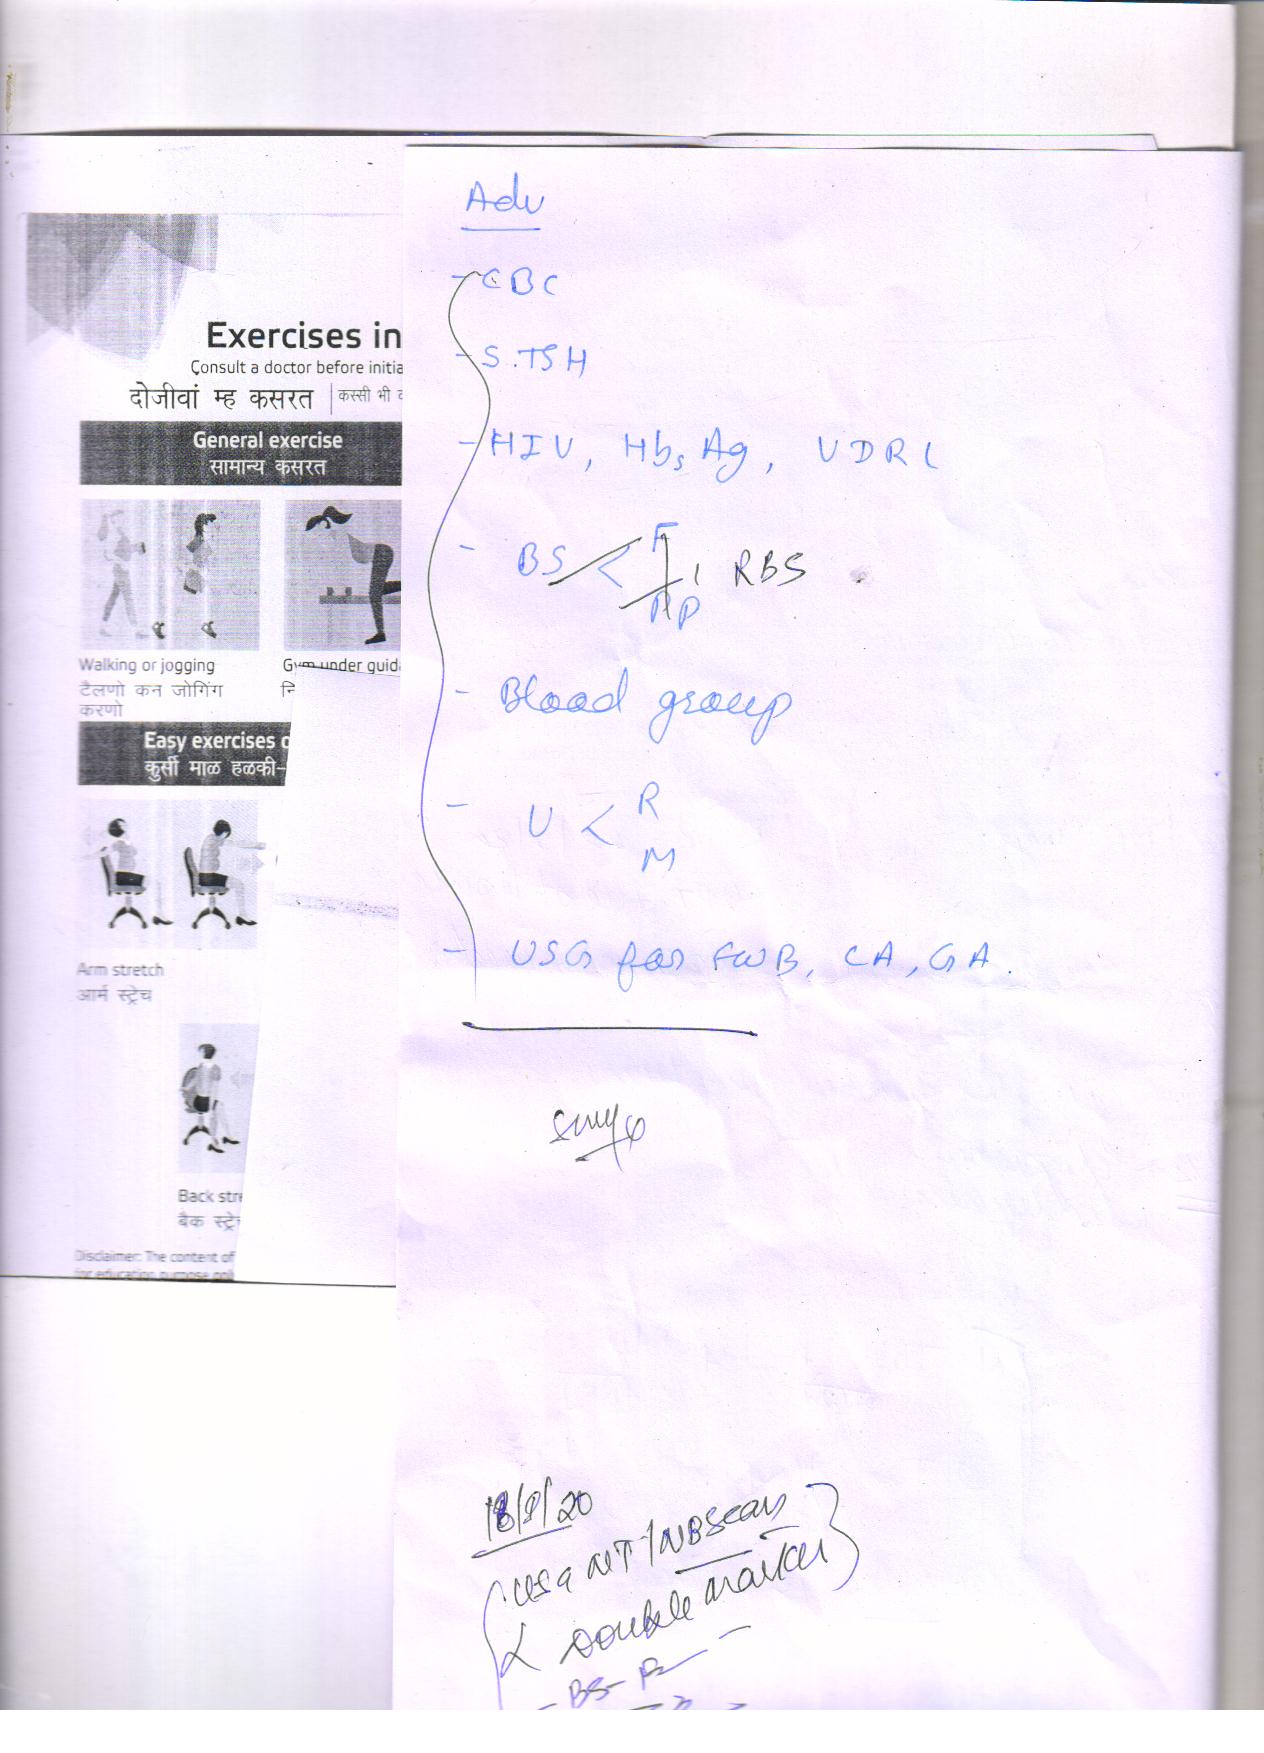 Exercises in
Consult a doctor before initia
दोजीवां म्ह कसरत | कस्सी भी
General exercise
सामान्य कसरत
Walking or jogging
टैलणो कन जोगिंग
करणो
Gym under guid
नि
Easy exercises
कुर्सी माळ हळकी-
Arm stretch
आर्म स्ट्रेच
Back stre
बैक स्ट्रे
Disclaimer: The content of
for education purpose only
Adv
- CBC
- S.TSH
- HIV, HbsAg, VDRL
- BS < F PP, RBS
- Blood group
- U < R M
- USG for FWB, CA, GA.
USG NT/NB Scan
Double marker
- BS-